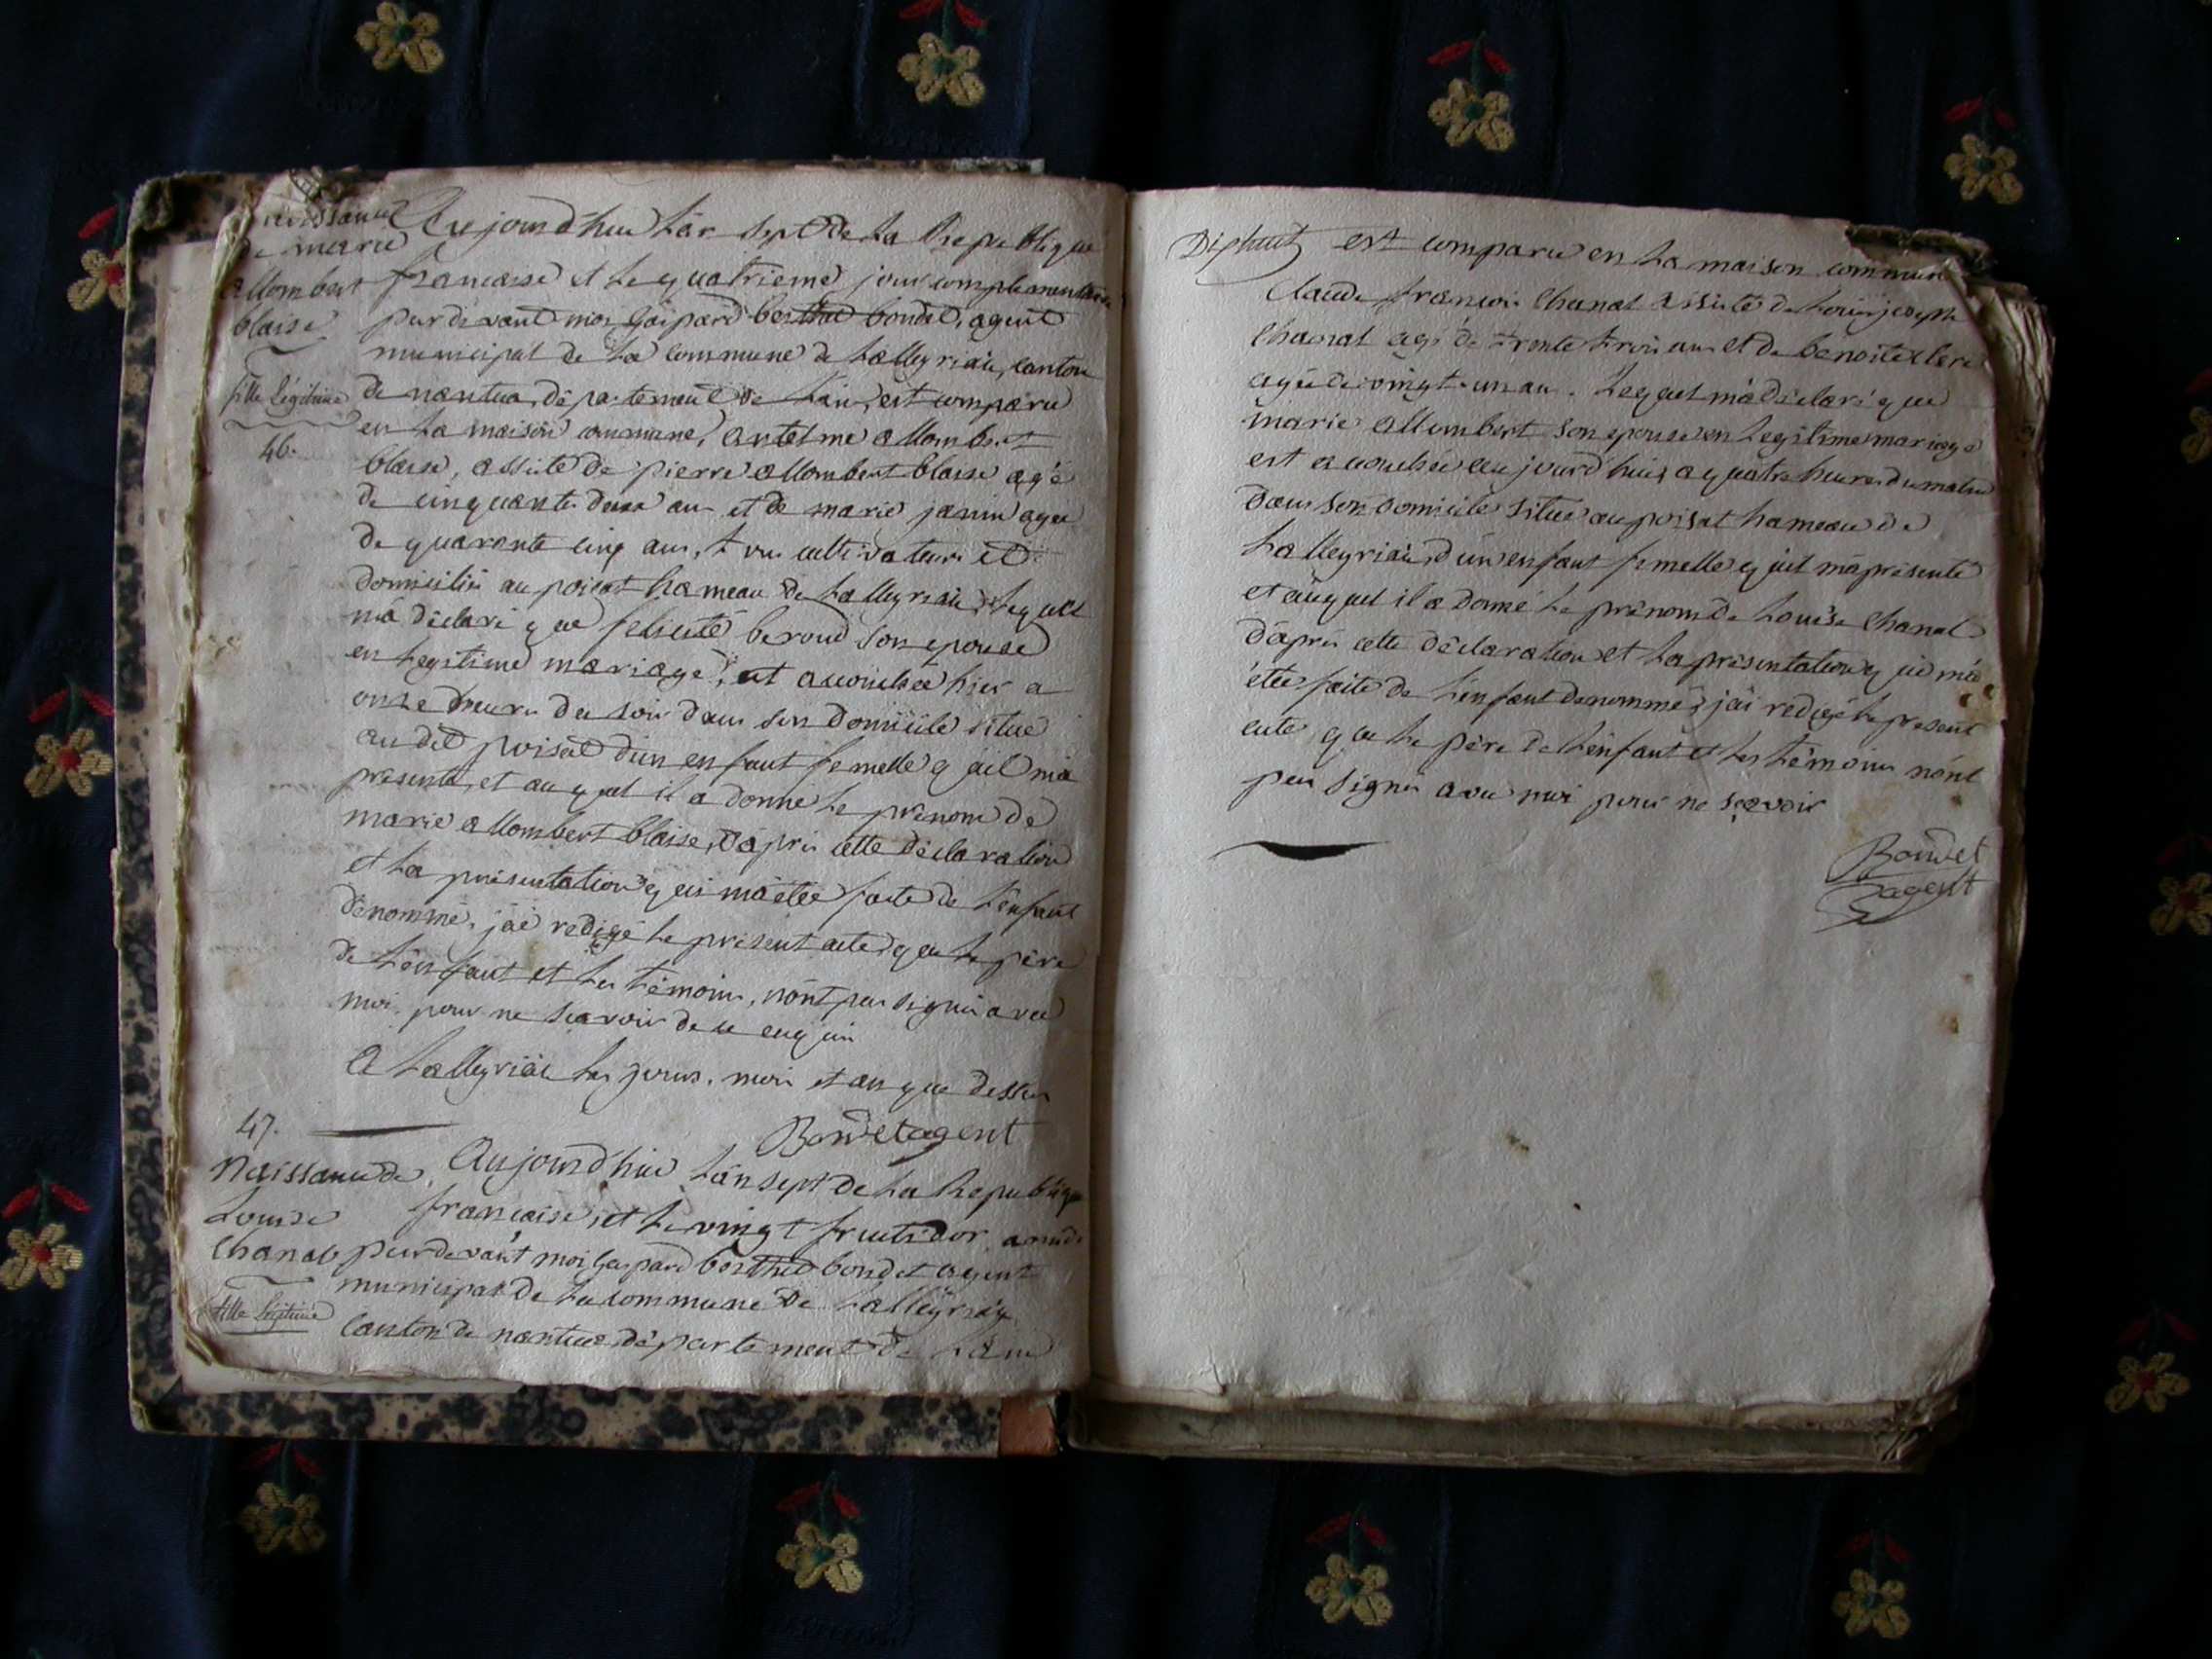 naissance
de marie
allombert
blaise
fille légitime
46.
Aujourd'hui L'an sept de La Republique
francaise et Le quatrieme jour complementaire
pardevant moi Gaspard berthet bondet, agent
municipal de La commune de Lalleyriat, canton
de nantua, département de L'ain, est comparu
en La maison commune, antelme allombert
blaise, assisté de pierre allombert blaise agé
de cinquante deux ans et de marie janin agée
de quarante cinq ans, tous cultivateurs et
domiciliés au poisat hameau de Lalleyriat, Lequel
m'a déclaré que felicité beroud son epouse
en Legitime mariage, est accouchée hier a
onze heures du soir dans son domicile situé
au dit poisat d'un enfant femelle qu'il m'a
présenté, et auquel il a donné Le prénom de
marie allombert blaise, d'après cette déclaration
et La présentation qui m'a étée faite de L'enfant
dénommé, j'ai redigé Le présent acte, que Le père
de L'enfant et Les témoins, n'ont pas signé avec
moi, pour ne sçavoir de ce enquis
A Lalleyriat Les jours, mois et an que dessus
Bondet agent
47.
Naissance de
Louise
Chanal
fille légitime
Aujourd'hui L'an sept de La Republique
francaise, et Le vingt fructidor, a midi
pardevant moi Gaspard berthet bondet agent
municipal de La commune de Lalleyriat
Canton de nantua, département de L'ain
est comparu en La maison commune
Claude francois Chanal assisté de Louis joseph
Chanal agé de trente trois ans et de benoite
agée de vingt un an. Lequel m'a déclaré que
marie allombert son epouse en Legitime mariage
est accouchée aujourd'hui, a quatre heures du matin
dans son domicile situé au poisat hameau de
Lalleyriat, d'un enfant femelle qu'il m'a présenté
et auquel il a donné Le prénom de Louise Chanal
d'après cette déclaration et La présentation qui m'a
étée faite de L'enfant denommé, j'ai redigé Le present
acte, que Le père de L'enfant et Les témoins n'ont
pas signé avec moi pour ne sçavoir
Bondet
agent